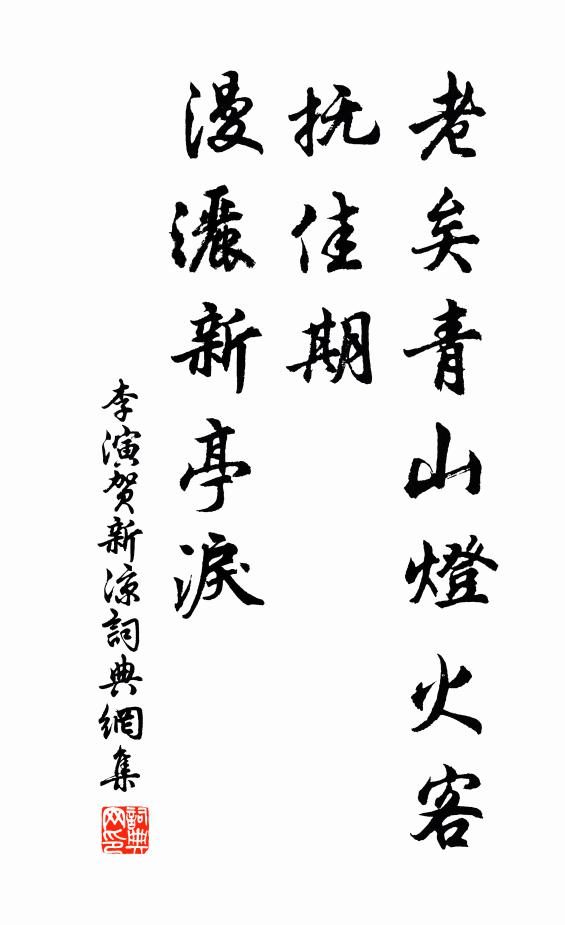 老矣青山燈火客
抚佳期
漫灑新亭淚
李演贺新凉詞典網集
詞典网印